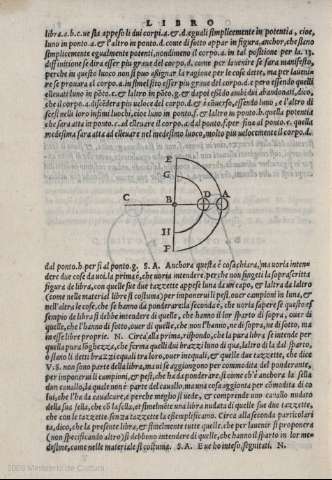 LIBRO
libra a.b.c. ue sia appeso li dui corpi .a. & .d. eguali simplicemente in potentia, cioe,
luno in ponto .a. & l'altro in ponto .d. come di sotto appar in figura, anchor, che sieno
simplicemente egualmente potenti, nondimeno il corpo .a. in tal positione per la .13.
diffinitione se dira esser piu graue del corpo .d. come per lauenire se fara manifesto,
perche in questo luoco non si puo assignar la ragione per le cose dette, ma per lauenir
se prouara el corpo .a. in simel sito esser piu graue del corpo .d. e pero essendo quelli
elleuati luno in põto .e. & laltro in põto .g. & dapoi essẽdo ambidui abandonati, dico,
che il corpo .a. discẽdera piu ueloce del corpo .d. & è conuerso, essendo luno, e l'altro di
scesi nelli loro infimi luochi, cioe luno in ponto .f. & laltro in ponto .h. quella potentia
che sara atta in ponto .a. ad elleuare il corpo .a. dal ponto .f. per fina al ponto .e. quella
medesima sara atta ad elleuare nel medesimo luoco, molto piu uelocemente il corpo .d.
E
G
C
B
D
A
H
F
dal ponto .h. per fi al ponto .g. S. A. Anchora questa è cosa chiara. ma uoria inten-
dere due cose da uoi. la prima è, che uoria intendere. per che non fingeti la soprascritta
figura de libra, con quelle sue due tazzette appese luna da un capo, & laltra da laltro
(come nelle material libre si costuma) per imponerui li pesi, ouer campioni in luna, &
nell'altra le cose, che se hanno da ponderar. la seconda è, che uoria sapere se questo es
sempio de libra si debbe intendere di quelle, che hanno il lor sparto di sopra, ouer di
quelle, che l'hanno di sotto, ouer di quelle, che non l'hanno, ne di sopra, ne di sotto, ma
in esse libre proprie. N. Circa alla prima, rispondo, che la pura libra se intende per
quella pura longhezza, che forma quelli dui brazzi luno di qua, laltro di la dal sparto,
o siano li detti brazzi equali tra loro, ouer inequali, & quelle due tazzette, che dice
V. S. non sono parte della libra, ma ui se aggiongono per commodita del ponderante,
per imponerui li campioni, & pesi, che ha da ponderar, si come ch'è anchora la sella
dun cauallo, la quale non è parte del cauallo, ma una cosa aggionta per cõmodita di co
lui, che l'ha da caualcare, e perche meglio si uede, & comprende uno cauallo nudato
della sua sella, che cõ la sella, e simelmente una libra nudata di quelle sue due tazzette,
che con le tazzette senza tazzette la essemplificamo. Circa alla seconda particolari
ta, dico, che la presente libra, e similmente tutte quelle, che per lauenir si proponera
(non specificando altro) si debbono intendere di quelle, che hanno il sparto in lor me-
desime, come nelle materiale si costuma. S. A. Eue ho inteso, seguitati. N.
2009 Ministerio de Cultura